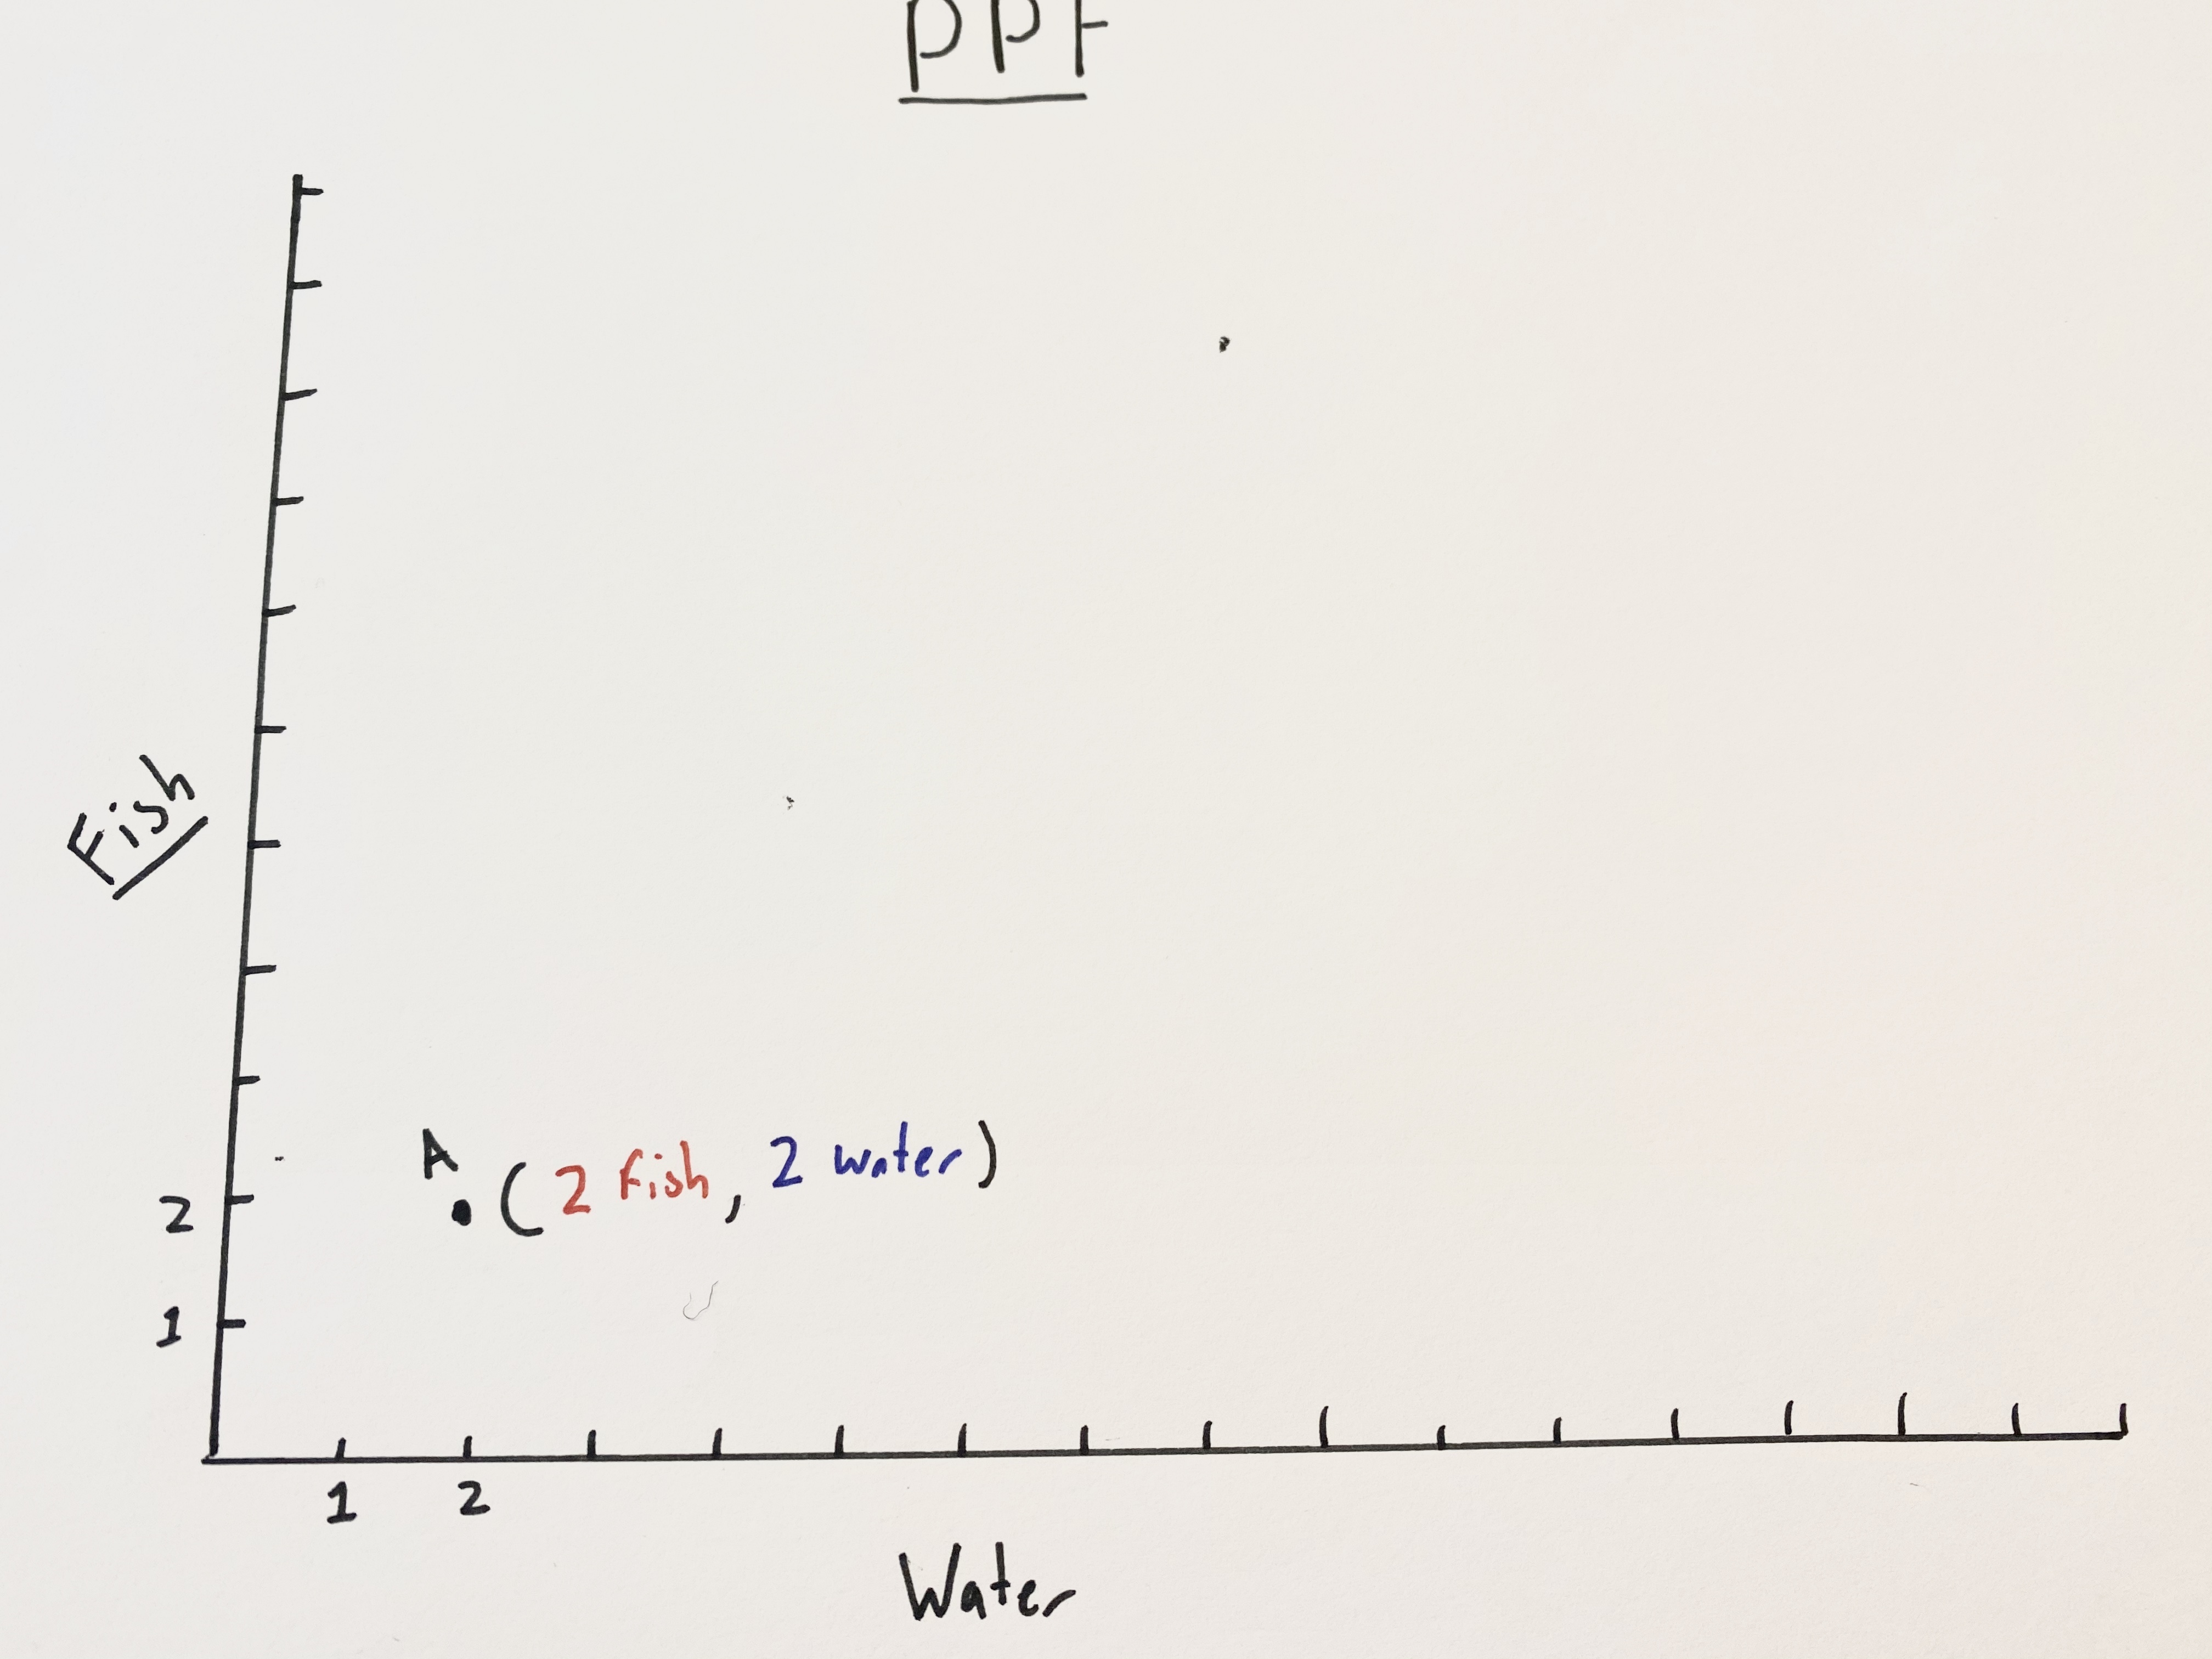 PPF
Fish
A
(2 fish, 2 water)
2
1
1 2
Water